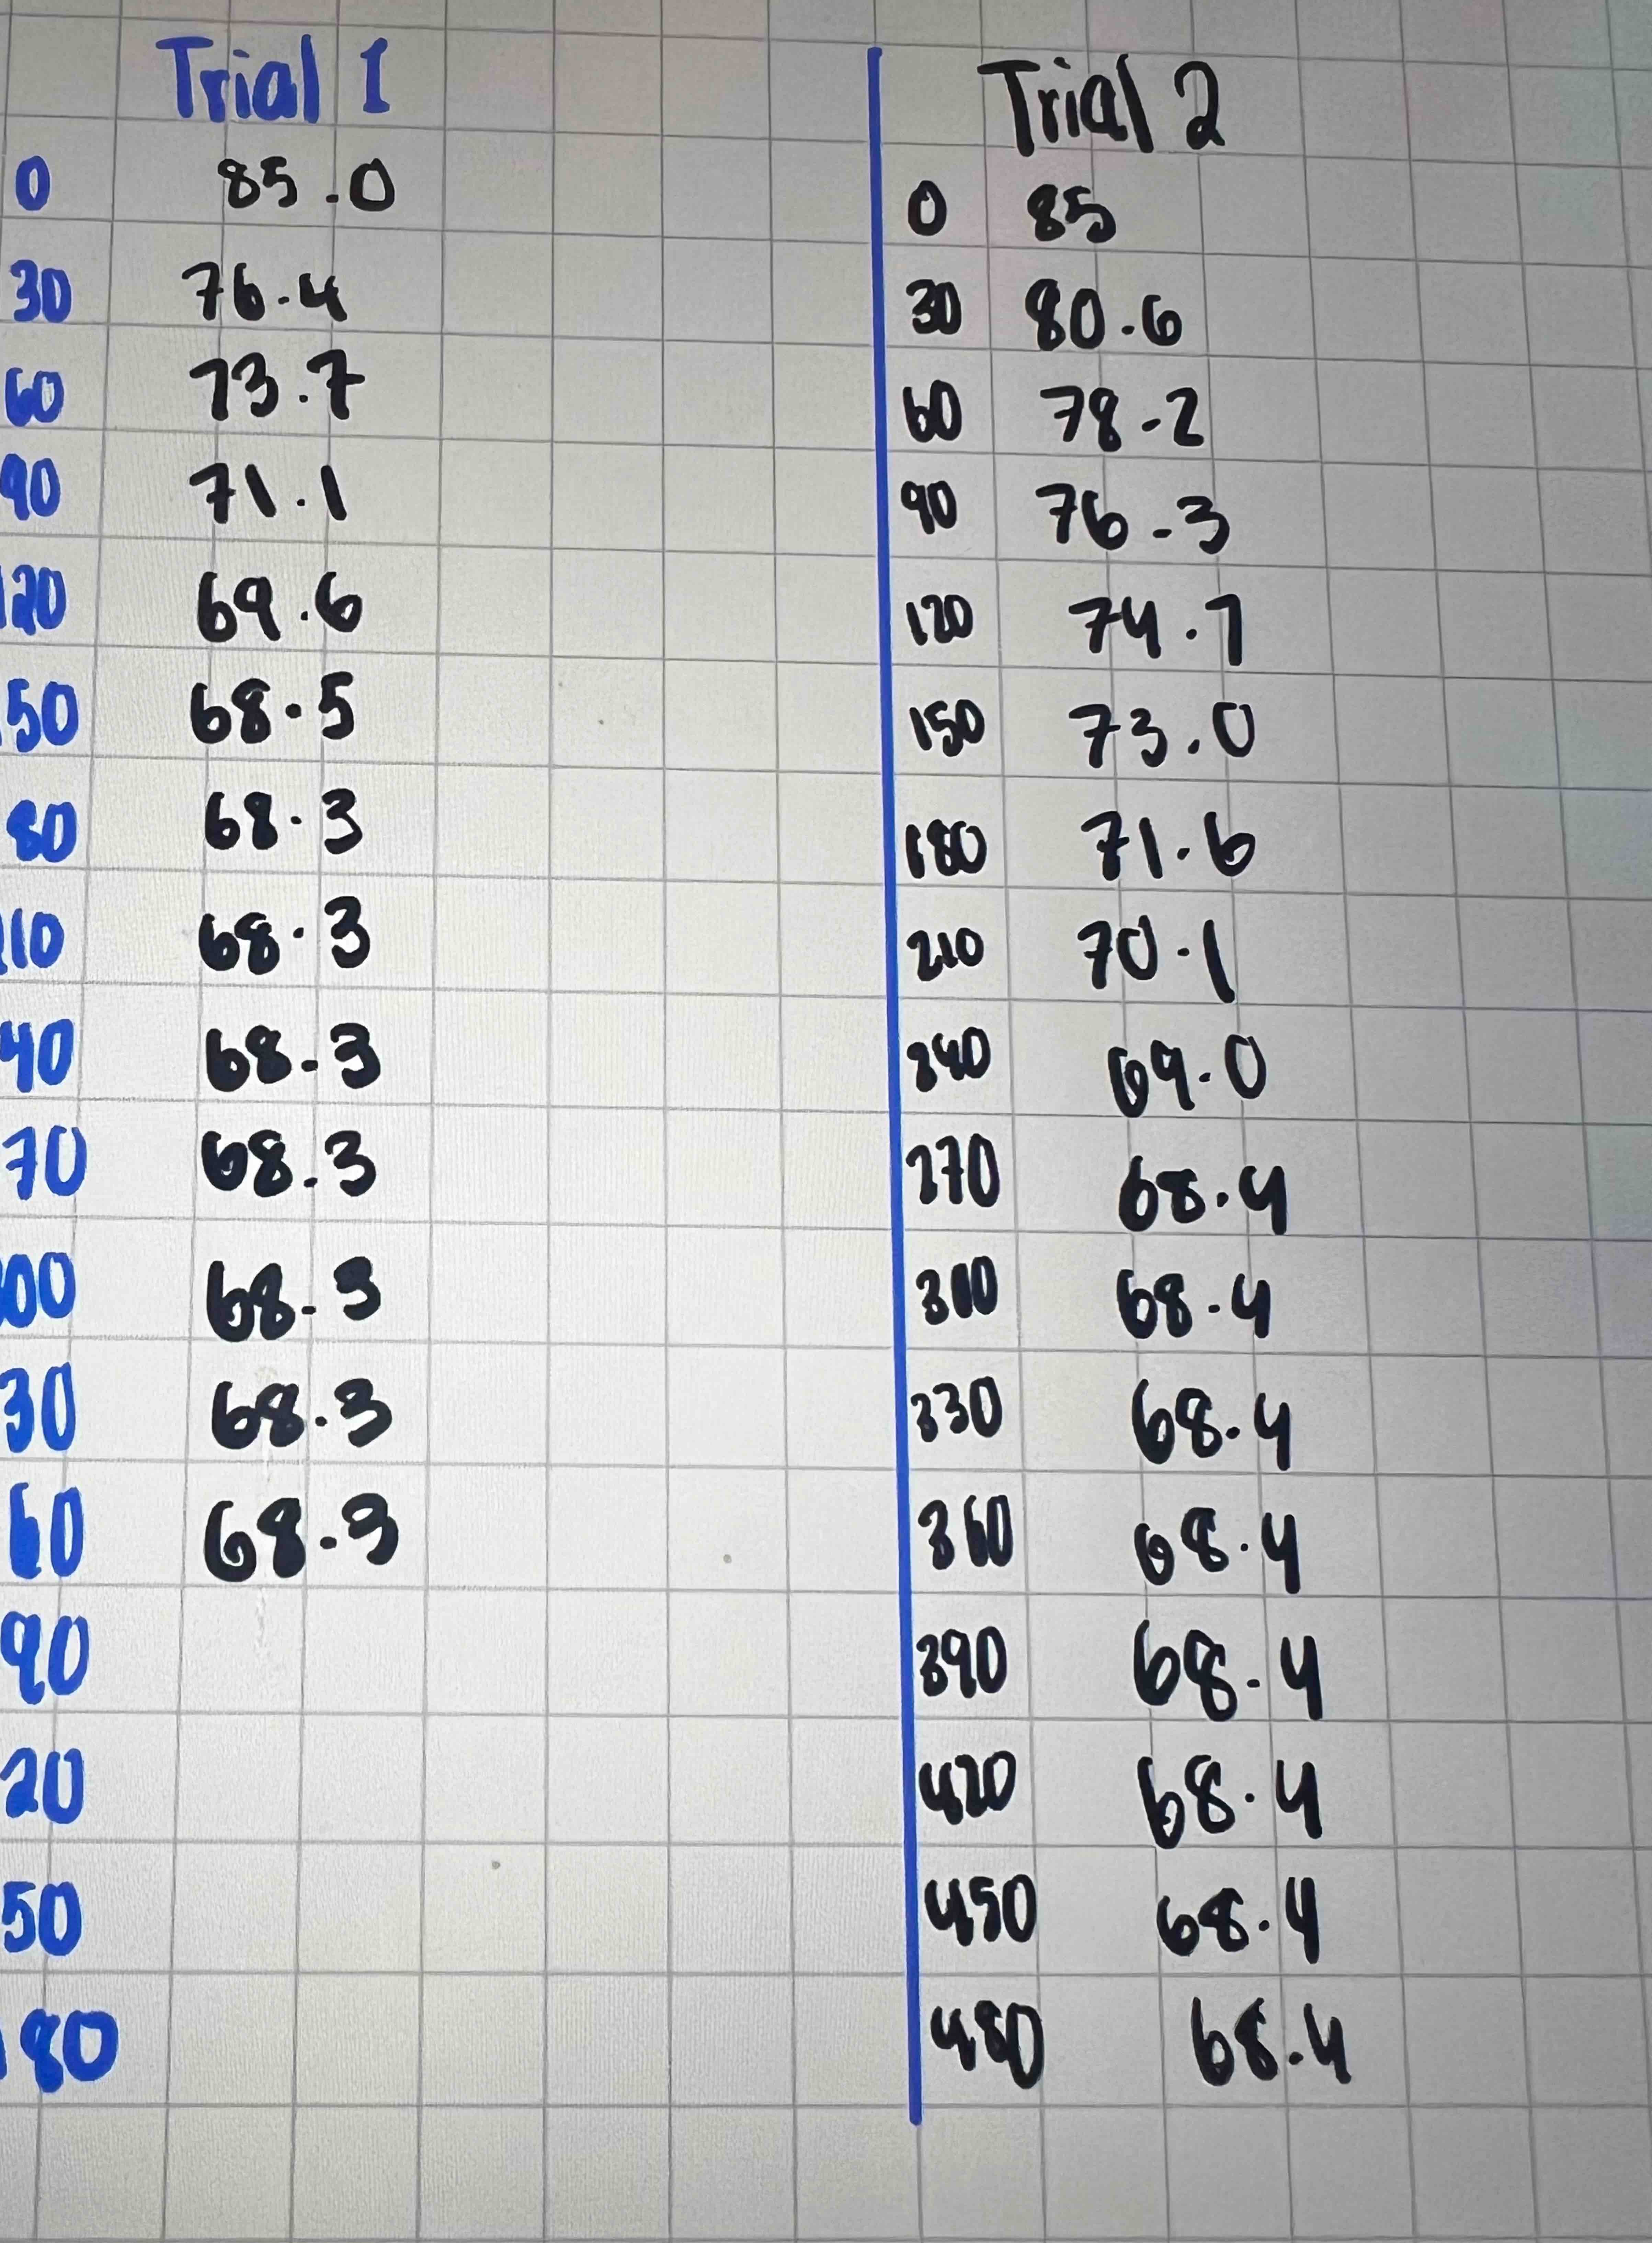 Trial 1
0 85.0
30 76.4
60 73.7
90 71.1
120 69.6
50 68.5
80 68.3
10 68.3
40 68.3
70 68.3
00 68.3
30 68.3
60 68.3
90
20
50
80
Trial 2
0 85
30 80.6
60 78.2
90 76.3
120 74.7
150 73.0
180 71.6
210 70.1
240 69.0
270 68.4
300 68.4
330 68.4
360 68.4
390 68.4
420 68.4
450 68.4
480 68.4